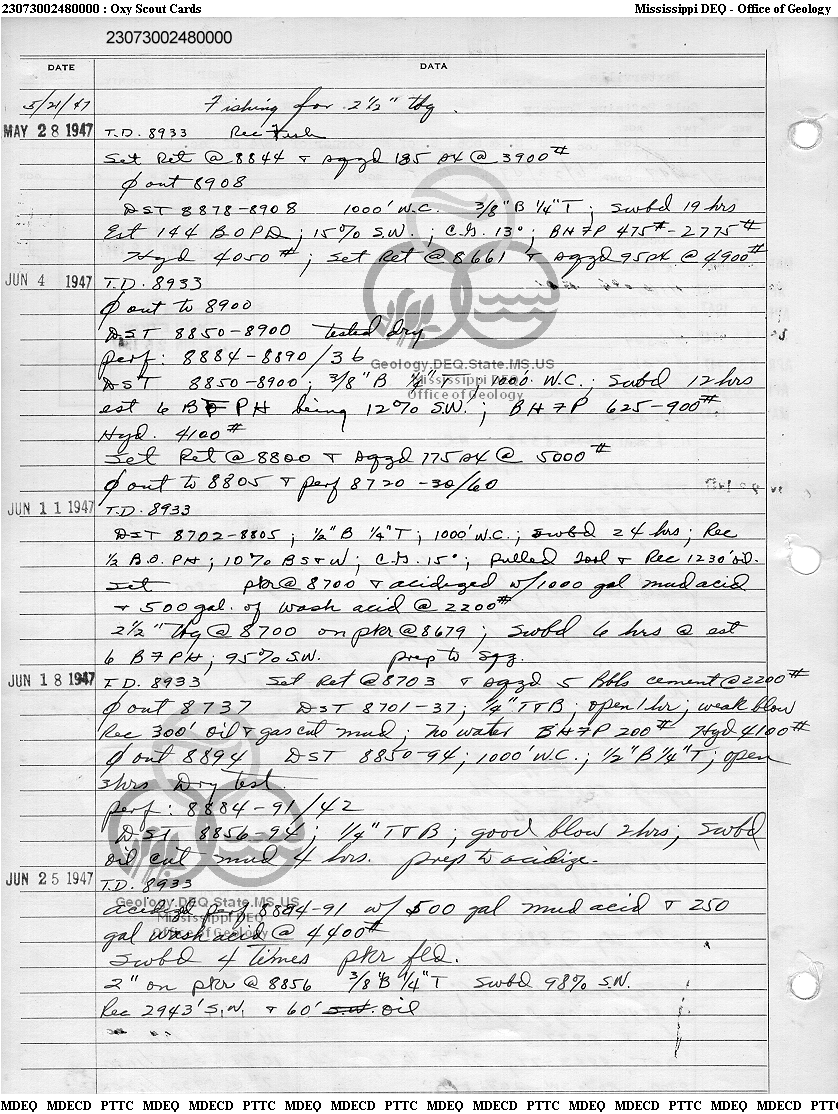 23073002480000 : Oxy Scout Cards Mississippi DEQ - Office of Geology
23073002480000
DATE DATA
5/21/47 Fishing for 2 1/2" tbg.
MAY 28 1947 T.D. 8933 Rec Fish
Set Ret @ 8844 & sqzd 185 sx @ 3900#
Ø out 8908
DST 8878-8908 1000' W.C. 3/8" B 1/4" T; Swbd 19 hrs
Est 144 BOPD; 15% S.W.; C.G. 13°; BHFP 475#-2775#
Hyd 4050#; Set Ret @ 8661 & sqzd 95 sx @ 4900#
JUN 4 1947 T.D. 8933
Ø out to 8900
DST 8850-8900 tested dry
perf: 8884-8890/36
Geology.DEQ.State.MS.US
DST 8850-8900; 3/8" B 1/4" T; 1000' W.C.; Swbd 12 hrs
Mississippi DEQ
Office of Geology
est 6 BFPH being 12% S.W.; BHFP 625-900#
Hyd. 4100#
Set Ret @ 8800 & sqzd 175 sx @ 5000#
Ø out to 8805 & perf 8720-30/60
JUN 11 1947 T.D. 8933
DST 8702-8805; 1/2" B 1/4" T; 1000' W.C.; swbd 24 hrs; Rec
1/2 B.O.PH; 10% BS&W; C.G. 15°; pulled tool & Rec 1230' oil.
Set pkr @ 8700 & acidized w/1000 gal mud acid
& 500 gal. of wash acid @ 2200#
2 1/2" tbg @ 8700 on pkr @ 8679; Swbd 6 hrs @ est
6 BFPH; 95% S.W. prep to sqz.
JUN 18 1947 T.D. 8933 Set Ret @ 8703 & sqzd 5 Bbls cement @ 2200#
Ø out 8737 DST 8701-37; 1/4" T & B; open 1 hr; weak blow
Rec 300' oil & gas cut mud; no water BHFP 200# Hyd 4100#
Ø out 8894 DST 8850-94; 1000' W.C.; 1/2" B 1/4" T; open
3 hrs Dry test.
perf: 8884-91/42
DST 8856-94; 1/4" T & B; good blow 2 hrs; Swbd
oil cut mud 4 hrs. prep to acidize.
JUN 25 1947 T.D. 8933
Geology.DEQ.State.MS.US
acidized perf 8884-91 w/ 500 gal mud acid & 250
Mississippi DEQ
Office of Geology
gal wash acid @ 4400#
Swbd 4 times pkr fld.
2" on pkr @ 8856 3/8" B 1/4" T Swbd 98% S.W.
Rec 2943' S.W. & 60' S.W. oil
MDEQ MDECD PTTC MDEQ MDECD PTTC MDEQ MDECD PTTC MDEQ MDECD PTTC MDEQ MDECD PTTC MDEQ MDECD PTT